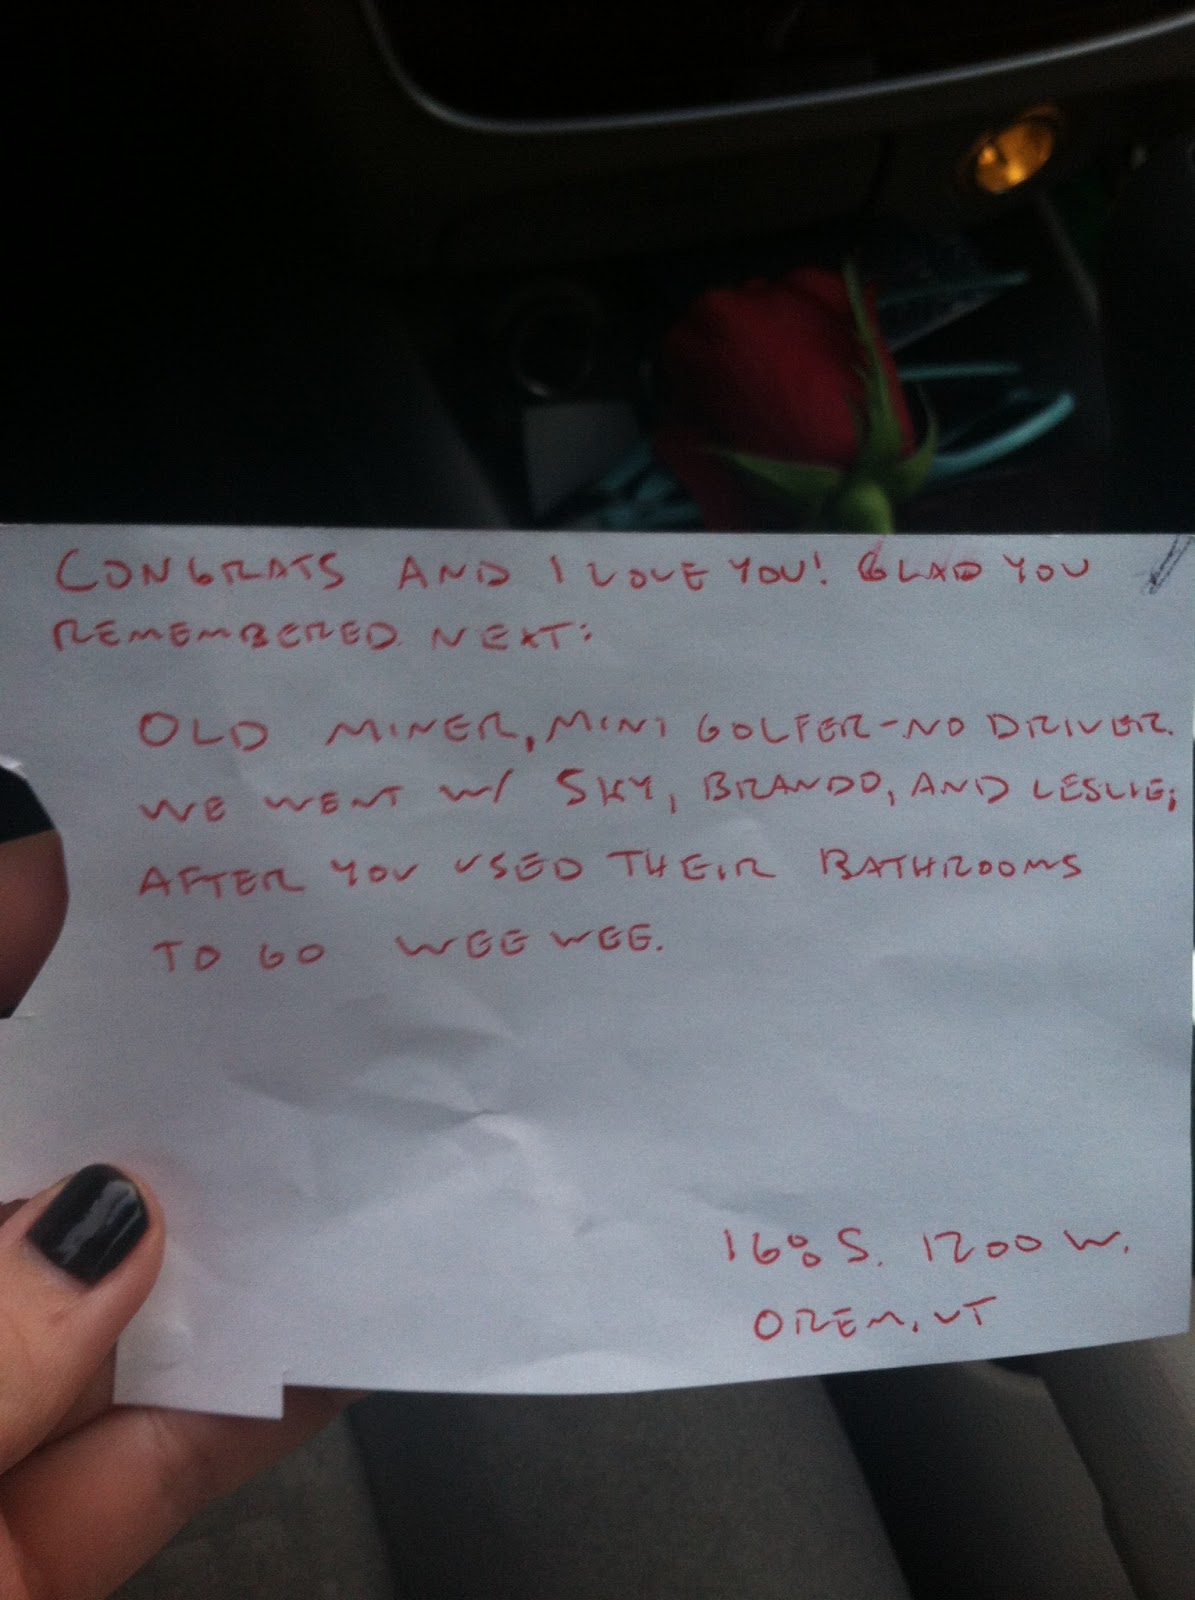 CONGRATS AND I LOVE YOU! GLAD YOU
REMEMBERED. NEXT:
OLD MINER, MINI GOLFER-NO DRIVER.
WE WENT W/ SKY, BRANDO, AND LESLIE;
AFTER YOU USED THEIR BATHROOMS
TO GO WEE WEE.
168 S. 1200 W.
OREM, UT